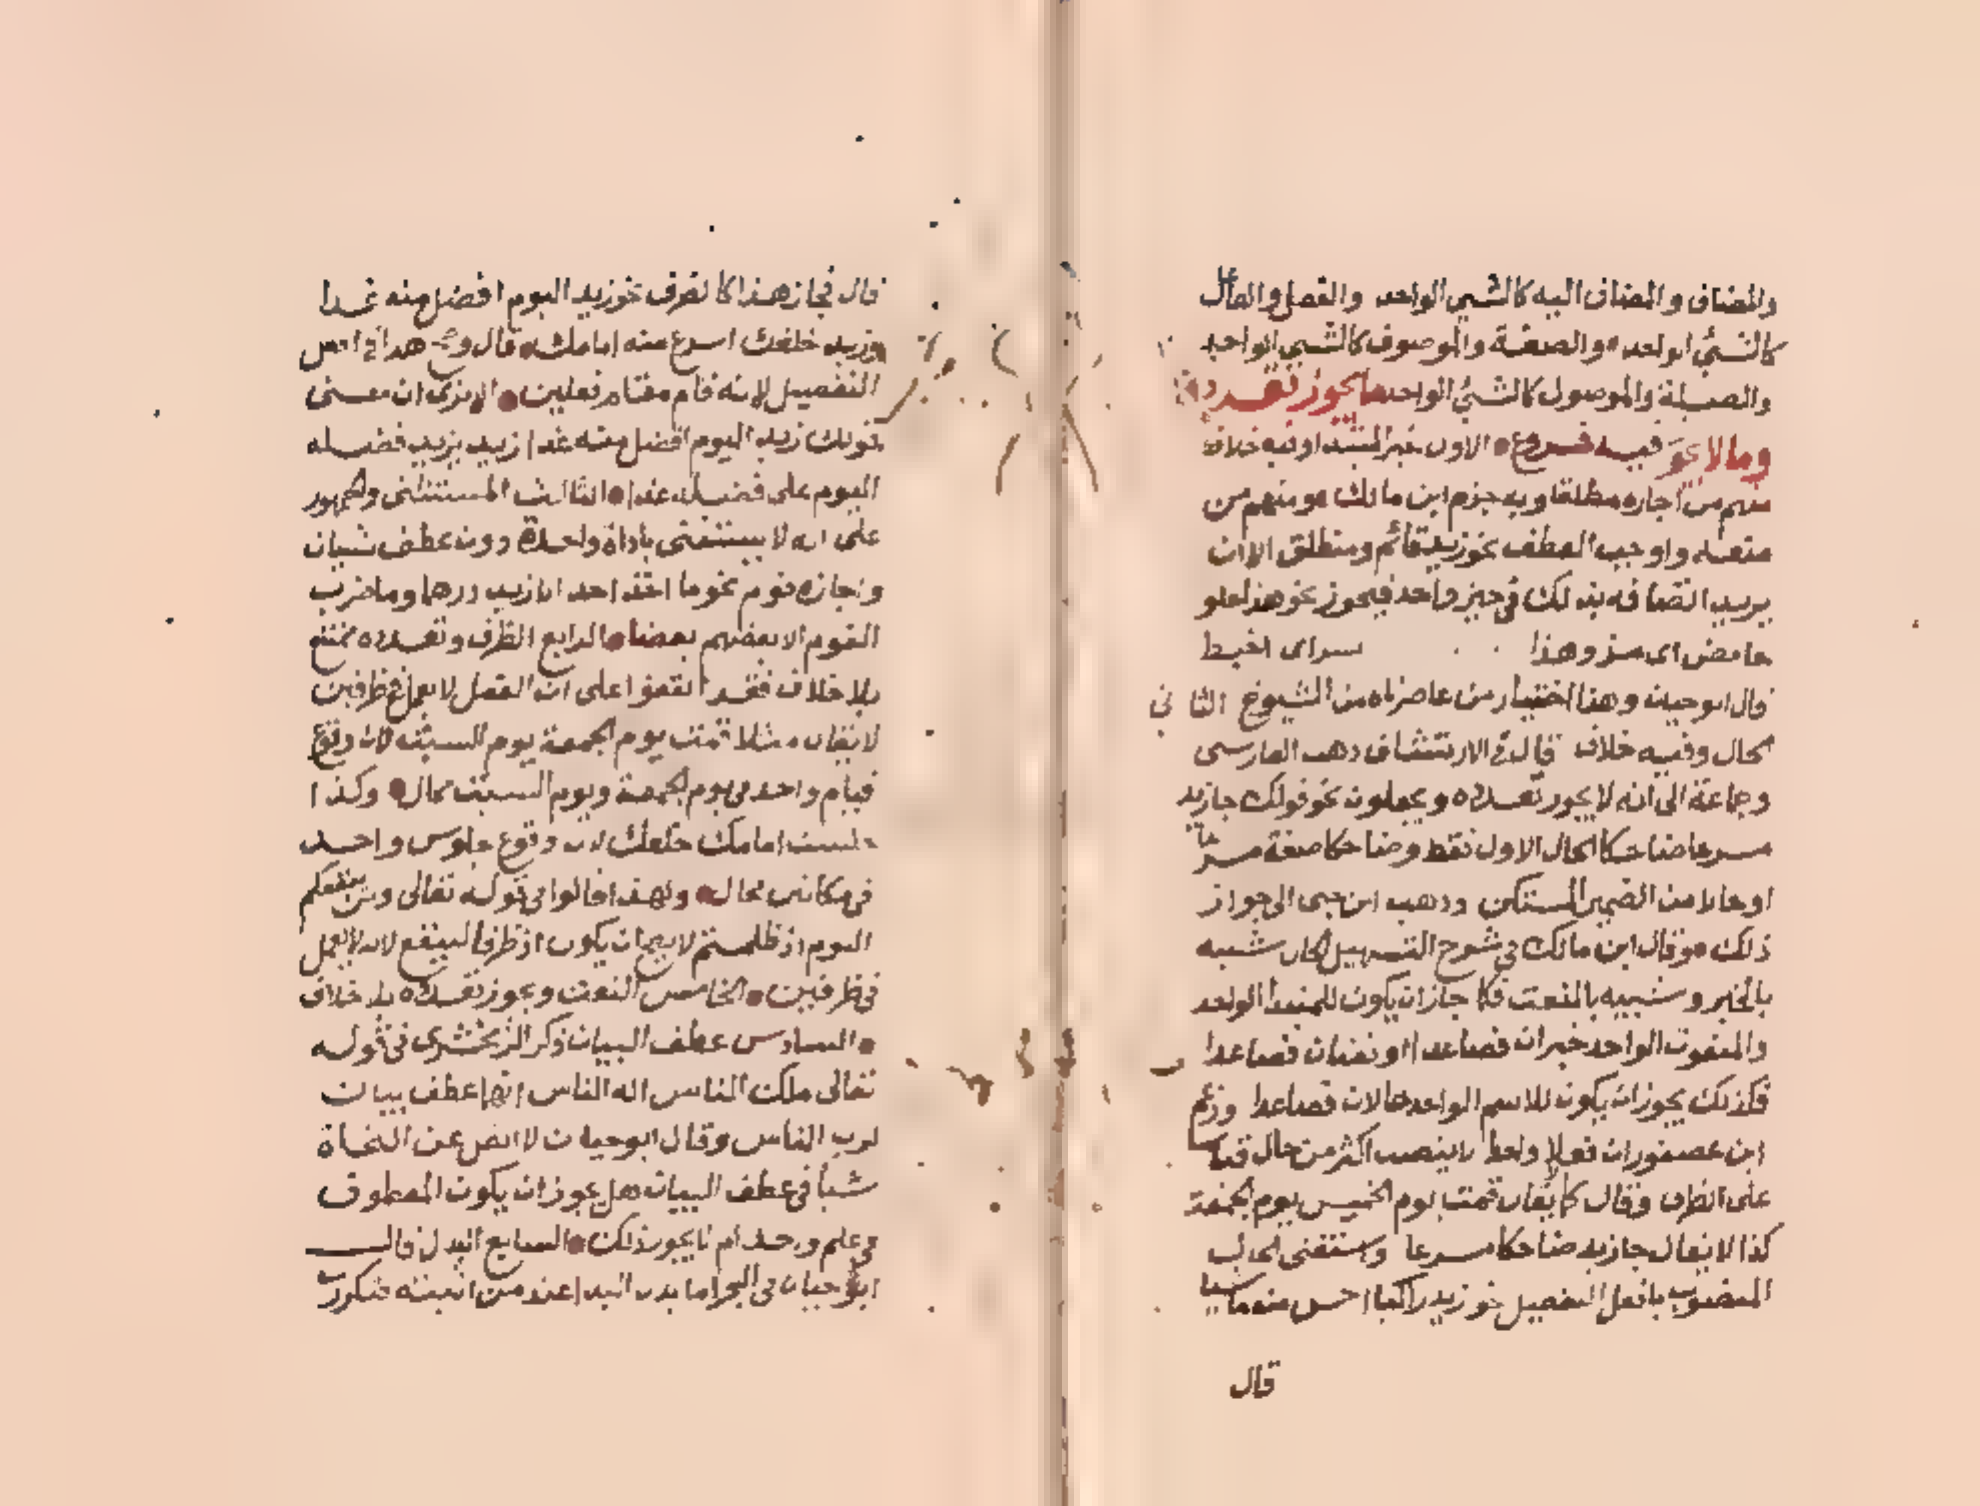 والمضاف والمضاف اليه كالشيء الواحد والفعل والفاعل
كالشيء الواحد والصفة والموصوف كالشيء الواحد
والصلة والموصول كالشيء الواحد ما يجوز تعدده
وما لا يجوز فيه فروع الاول خبر المبتدا وفيه خلاف
منهم من اجازه مطلقا وبه جزم ابن مالك ومنهم من
منعه واوجب العطف نحو زيد قائم ومنطلق الا ان
يريد اتصافه بذلك في حين واحد فيجوز نحو هذا حلو
حامض اى مز وهذا اى اضبط
قال ابو حيان وهذا اختيار من عاصرناه من الشيوخ الثاني
الحال وفيه خلاف قال في الارتشاف ذهب الفارسي
وجماعة الى انه لا يجوز تعدده ويجعلون نحو قولك جا زيد
مسرعا ضاحكا الحال الاول فقط وضاحكا صفة مسرعا
او حالا من الضمير المستكن وذهب ابن جنى الى جواز
ذلك وقال ابن مالك في شرح التسهيل الحال شبيه
بالخبر وشبيه بالنعت فكما جاز ان يكون للمبتدا الواحد
والمنعوت الواحد خبران فصاعدا او نعتان فصاعدا
فكذلك يجوز ان يكون للاسم الواحد حالان فصاعدا وزعم
ابن عصفور ان فعلا واحدا لا ينصب اكثر من حال قياسا
على الظرف وقال كما لا يقال قمت يوم الخميس يوم الجمعة
كذا لا يقال جا زيد ضاحكا مسرعا واستثنى الحال
المنصوب بافعل التفضيل نحو زيد راكبا احسن منه ماشيا
قال
قال فجاز هذا كالظرف نحو زيد اليوم افضل منه غدا
وزيد خلفك اسرع منه امامك قال وصح هذا في افعل
التفضيل لانه قام مقام فعلين الا ترى ان معنى
قولك زيد اليوم افضل منه غدا زيد يزيد فضله
اليوم على فضله غدا الثالث المستثنى والجمهور
على انه لا يستثنى باداة واحدة دون عطف شيان
واجازه قوم نحو ما اخذ احد الا زيد درهما وما ضرب
القوم الا بعضهم بعضا الرابع الظرف وتعدده ممتنع
بلا خلاف فقد اتفقوا على ان الفعل لا يعمل في ظرفين
لا يقال مثلا قمت يوم الجمعة يوم السبت لان وقوع
قيام واحد في يوم الجمعة ويوم السبت محال وكذا
جلست امامك خلفك لان وقوع جلوس واحد
في مكانين محال ولهذا قالوا في قوله تعالى ولن ينفعكم
اليوم اذ ظلمتم لا يصح ان يكون اذ ظرفا لينفع لانه لا يعمل
في ظرفين الخامس النعت ويجوز تعدده بلا خلاف
السادس عطف البيان ذكر الزمخشرى في قوله
تعالى ملك الناس اله الناس انهما عطف بيان
لرب الناس وقال ابو حيان لا انقل عن النحاة
شيا في عطف البيان هل يجوز ان يكون المعطوف
في علم واحد ام لا يجوز ذلك السابع البدل قال
ابو حيان في البحر اما بدل البدا عند من اثبته فتكرر